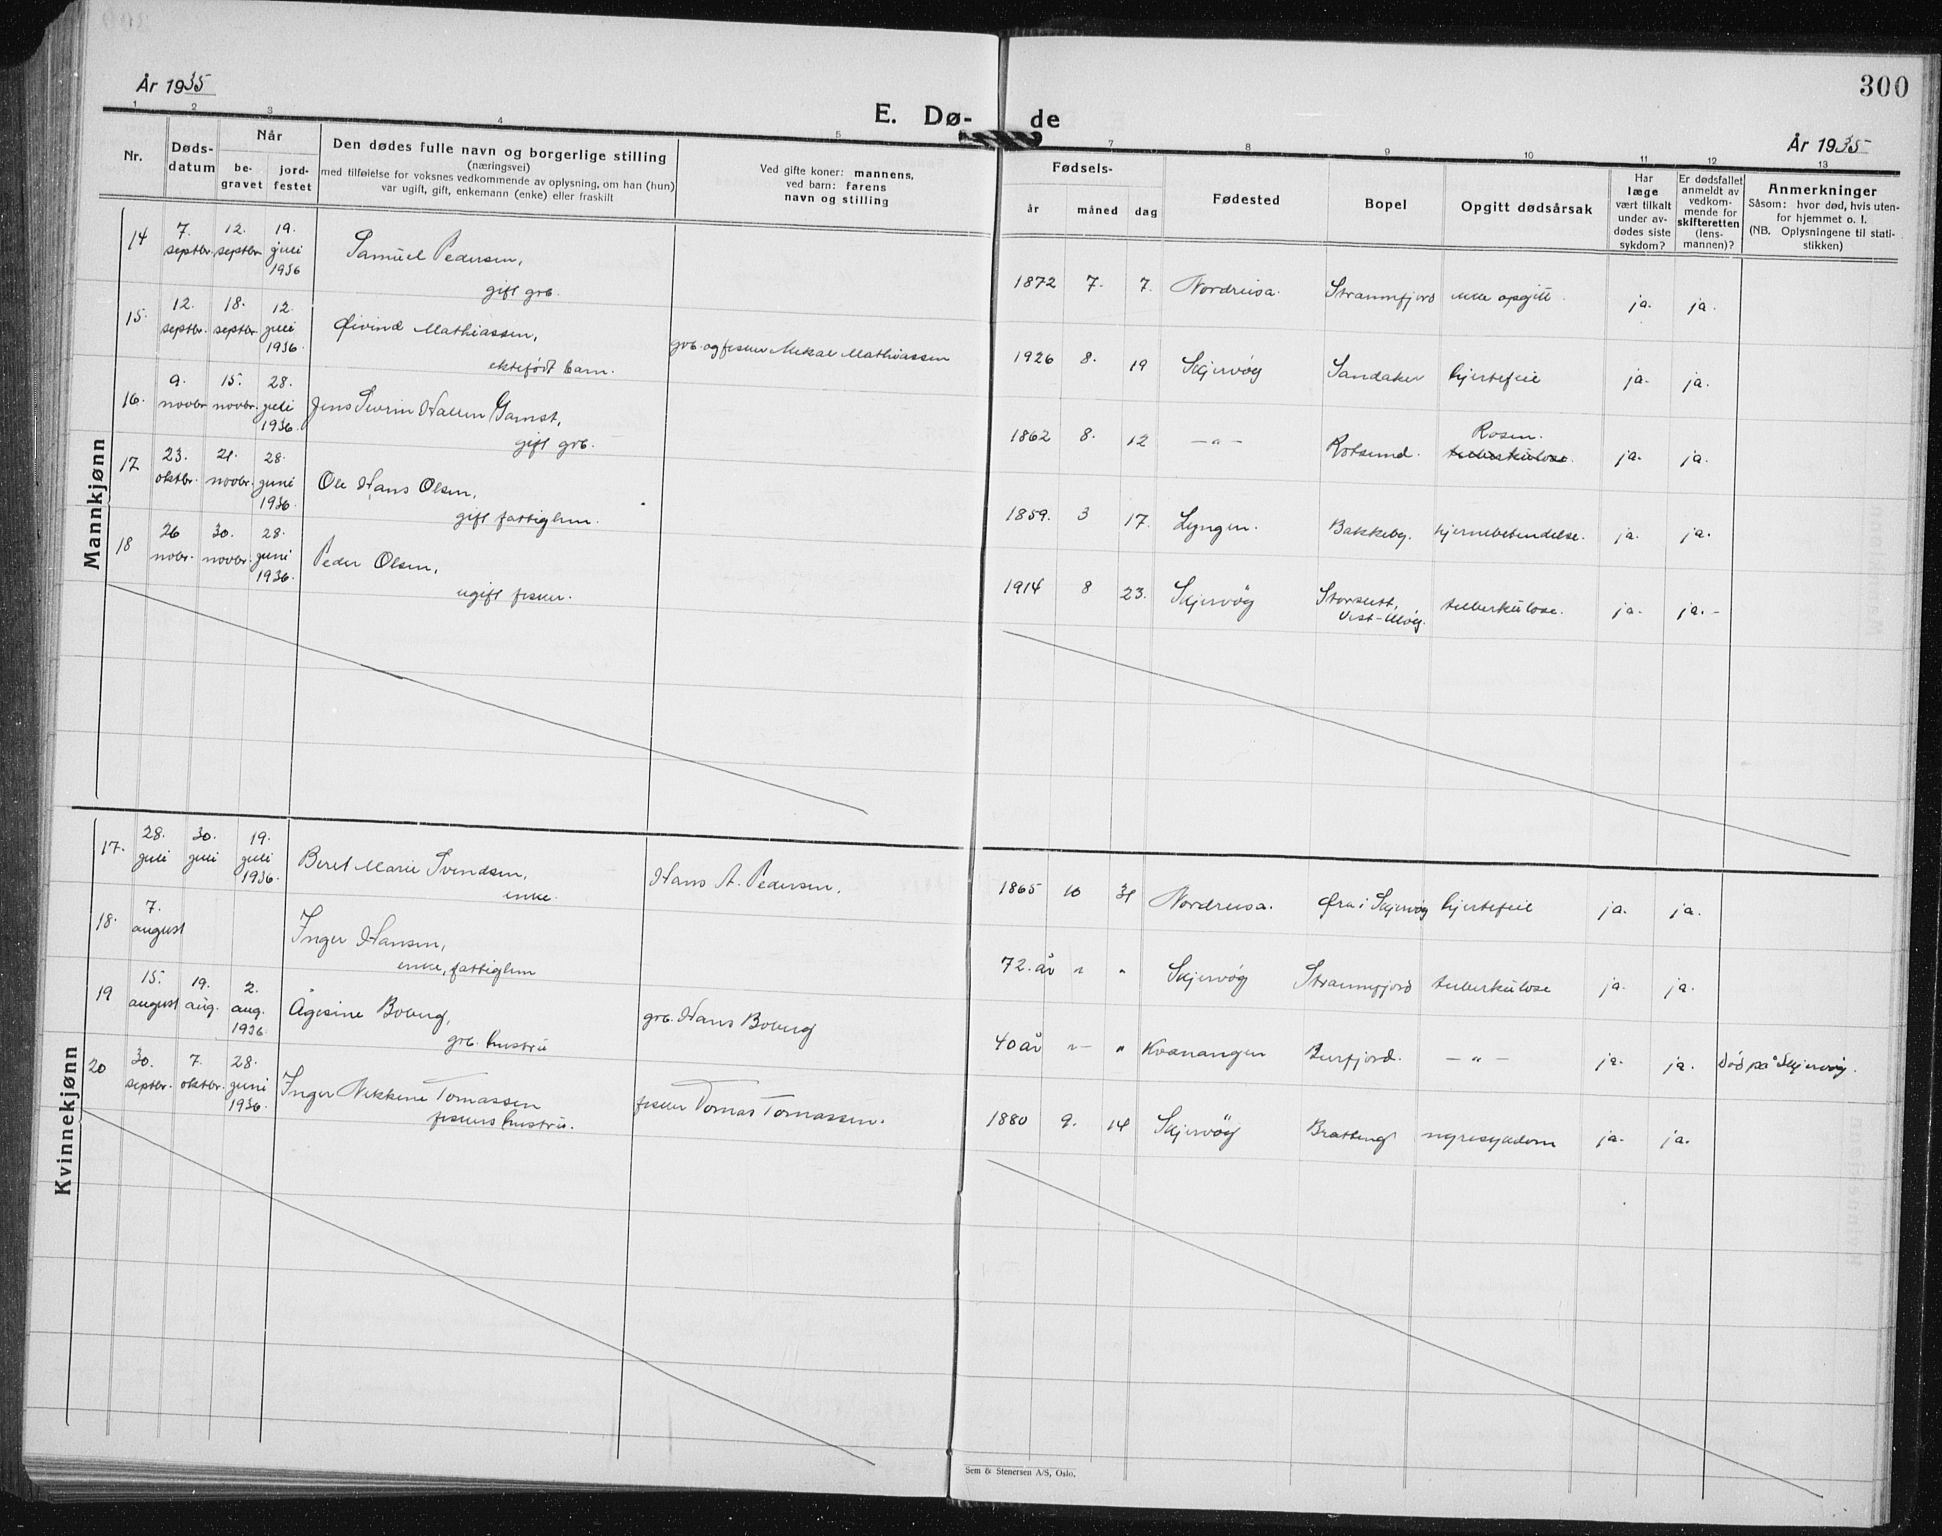 300
År 1935
E. Dø- de
År 1935
1 2 3 4 5 7 8 9 10 11 12 13
Nr.
Døds-
datum
Når
be-
gravet
jord-
festet
Den dødes fulle navn og borgerlige stilling
(næringsvei)
med tilføielse for voksnes vedkommende av oplysning, om han (hun)
var ugift, gift, enkemann (enke) eller fraskilt
Ved gifte koner: mannens,
ved barn: farens
navn og stilling
Fødsels-
år måned dag
Fødested
Bopel
Opgitt dødsårsak
Har
læge
vært tilkalt
under av-
dødes siste
sykdom?
Er dødsfallet
anmeldt av
vedkom-
mende for
skifteretten
(lens-
mannen)?
Anmerkninger
Såsom: hvor død, hvis uten-
for hjemmet o. l.
(NB. Oplysningene til stati-
stikken)
Mannkjønn
14 7. septbr. 12. septbr. 19. juli 1936 Samuel Pedersen, gift grb. 1872 7. 7. Nordreisa. Straumfjord ikke opgitt. ja. ja.
15. 12. septbr. 18. septbr. 12. juli 1936. Øivind Mathiassen, ektefødt barn. grb. og fisker Mikal Mathiassen 1926 8. 19 Skjervöy Sandaker hjertefeil ja. ja.
16. 9. novbr 15. novbr. 28. juli 1936. Jens Sevrin Hallen Gamst, gift grb. 1862 8. 12 -"- Rotsund. Rosen. tuberkulose. ja. ja.
17 23. oktbr. 21. novbr. 28. juni 1936. Ole Hans Olsen, gift fattiglem. 1859. 3 17. Lyngen. Bakkeby. hjernebetendelse. ja. ja.
18 26 novbr. 30. novbr. 28. juni 1936. Peder Olsen, ugift fisker. 1914 8 23. Skjervöy Storslett, tuberkulose. ja. ja.-
Kvinnekjønn
17. 28. juli 30. juli 19. juli 1936. Beret Marie Svendsen, enke. Hans A. Pedersen. 1865 10 31 Nordreisa. Øra i Skjervöy hjertefeil ja. ja.
18. 7. august Inger Hansen, enke, fattiglem 72. år " " Skjervöy Straumfjord tuberkulose ja. ja.
19 15. august 19. aug. 2. aug. 1936 Ågesine Boberg, grb. hustru grb. Hans Boberg 40 år "- " Kvænangen Burfjord. -"- ja. ja. död på Skjervöy.
20 30. septbr. 7. oktbr. 28. juni 1936. Inger Nikkine Tomassen fiskers hustru. fisker Tomas Tomassen. 1880 9. 14 Skjervöy Bratteng nyresykdom ja. ja.
Sem & Stenersen A/S, Oslo.